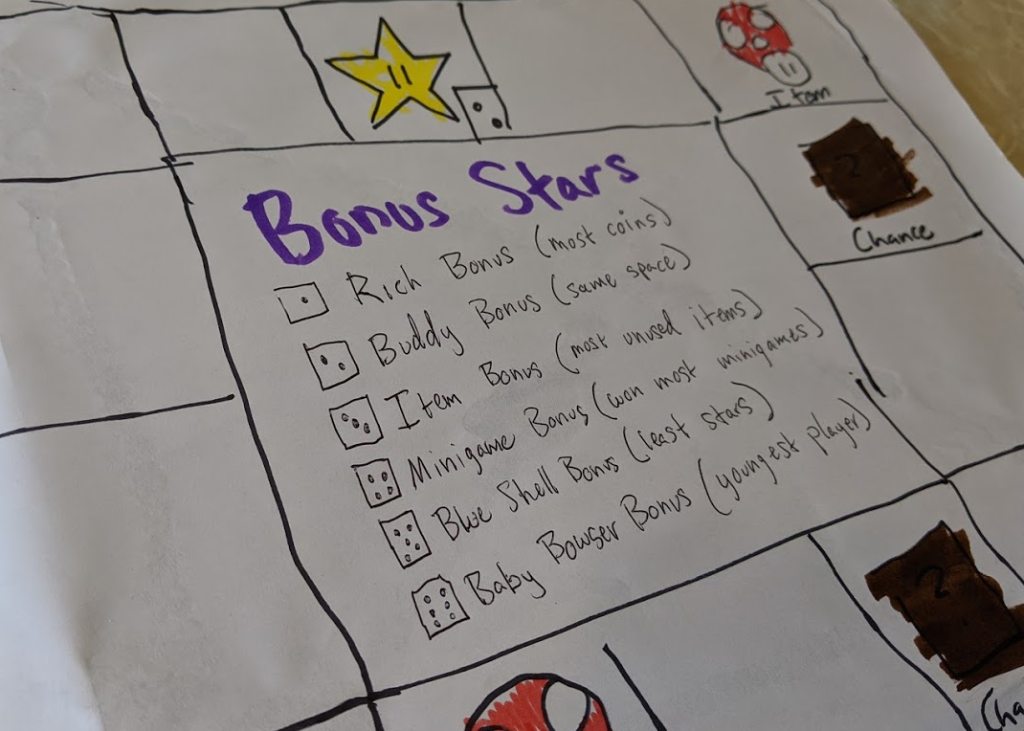 Item
Bonus Stars
Chance
Rich Bonus (most coins)
Buddy Bonus (same space)
Item Bonus (most unused items)
Minigame Bonus (won most minigames)
Blue Shell Bonus (least stars)
Baby Bowser Bonus (youngest player)
?
?
Cha